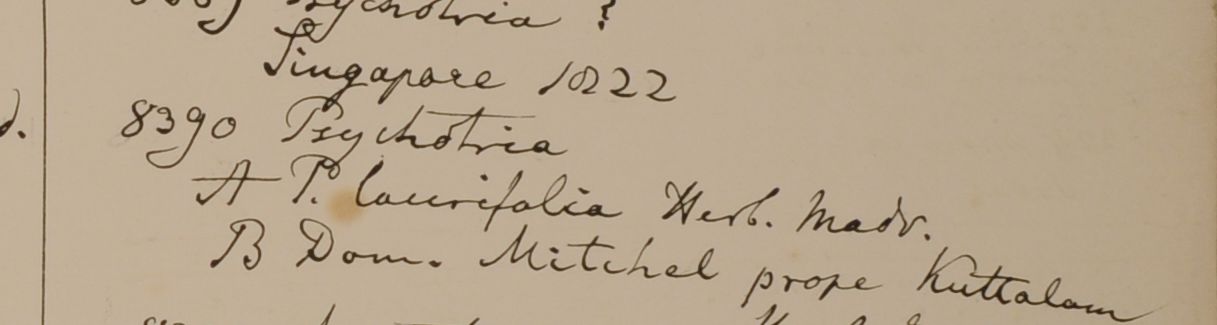 Psychotria ?
Singapore 1822
8390 Psychotria
A P. laurifolia Herb. Madr.
B Dom. Mitchel prope Kuttalam